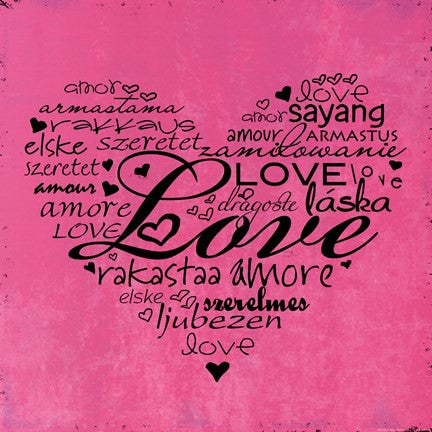 amor
armastama
rakkaus
elske szeretet
szeretet
amour
amore
LOVE
love
amor sayang
amour ARMASTUS
zamilowanie
LOVE love
dragoste láska
Love
rakastaa amore
elske szerelmes
ljubezen
love